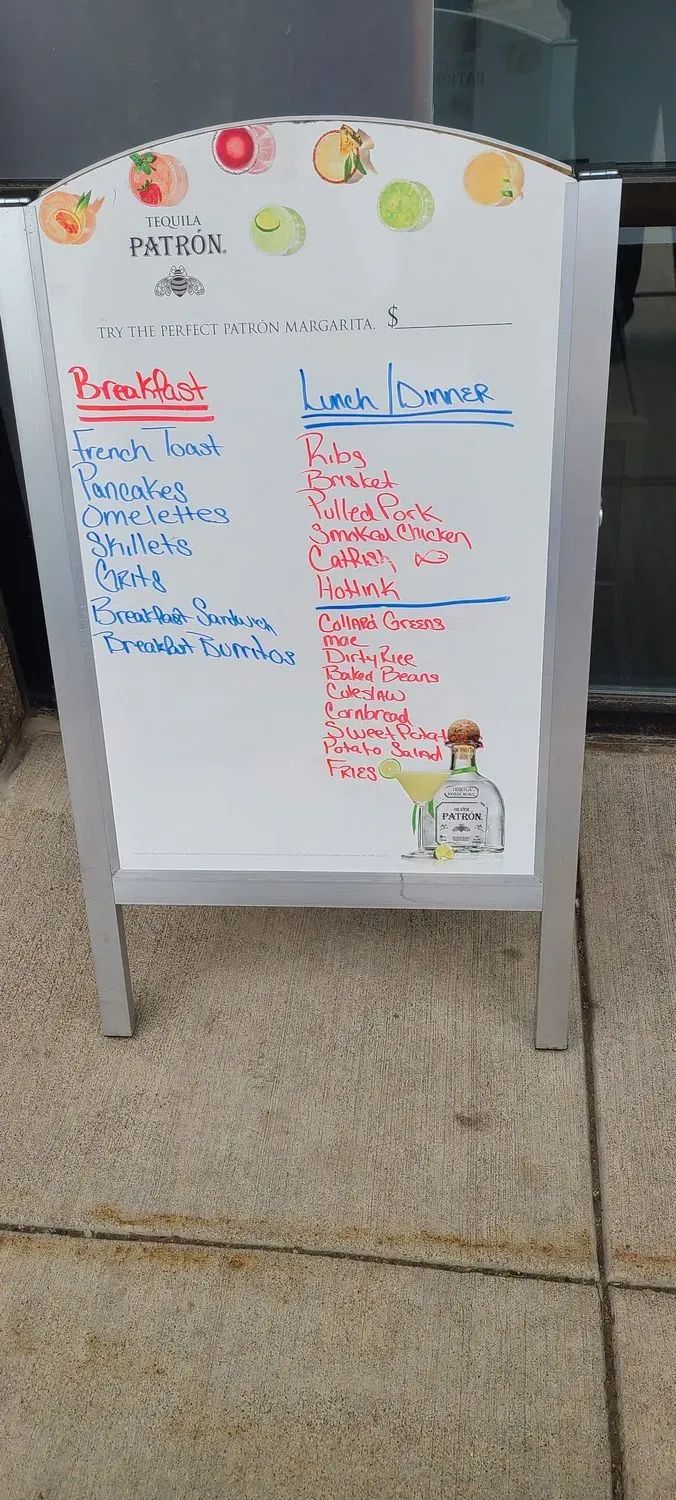 TEQUILA
PATRÓN®
TRY THE PERFECT PATRÓN MARGARITA. $
Breakfast
French Toast
Pancakes
Omelettes
Skillets
Grits
Breakfast Sandwich
Breakfast Burritos
Lunch / Dinner
Ribs
Brisket
Pulled Pork
Smoked Chicken
Catfish
Hotlink
Collard Greens
mac
Dirty Rice
Baked Beans
Coleslaw
Cornbread
Sweet Potat
Potato Salad
Fries
SILVER
PATRÓN